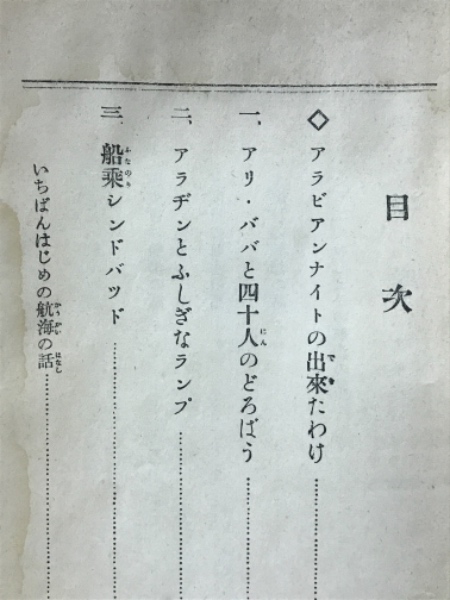 目次
◇ アラビアンナイトの出來たわけ
一、アリ・ババと四十人のどろばう
二、アラヂンとふしぎなランプ
三、船乘シンドバツド
いちばんはじめの航海の話